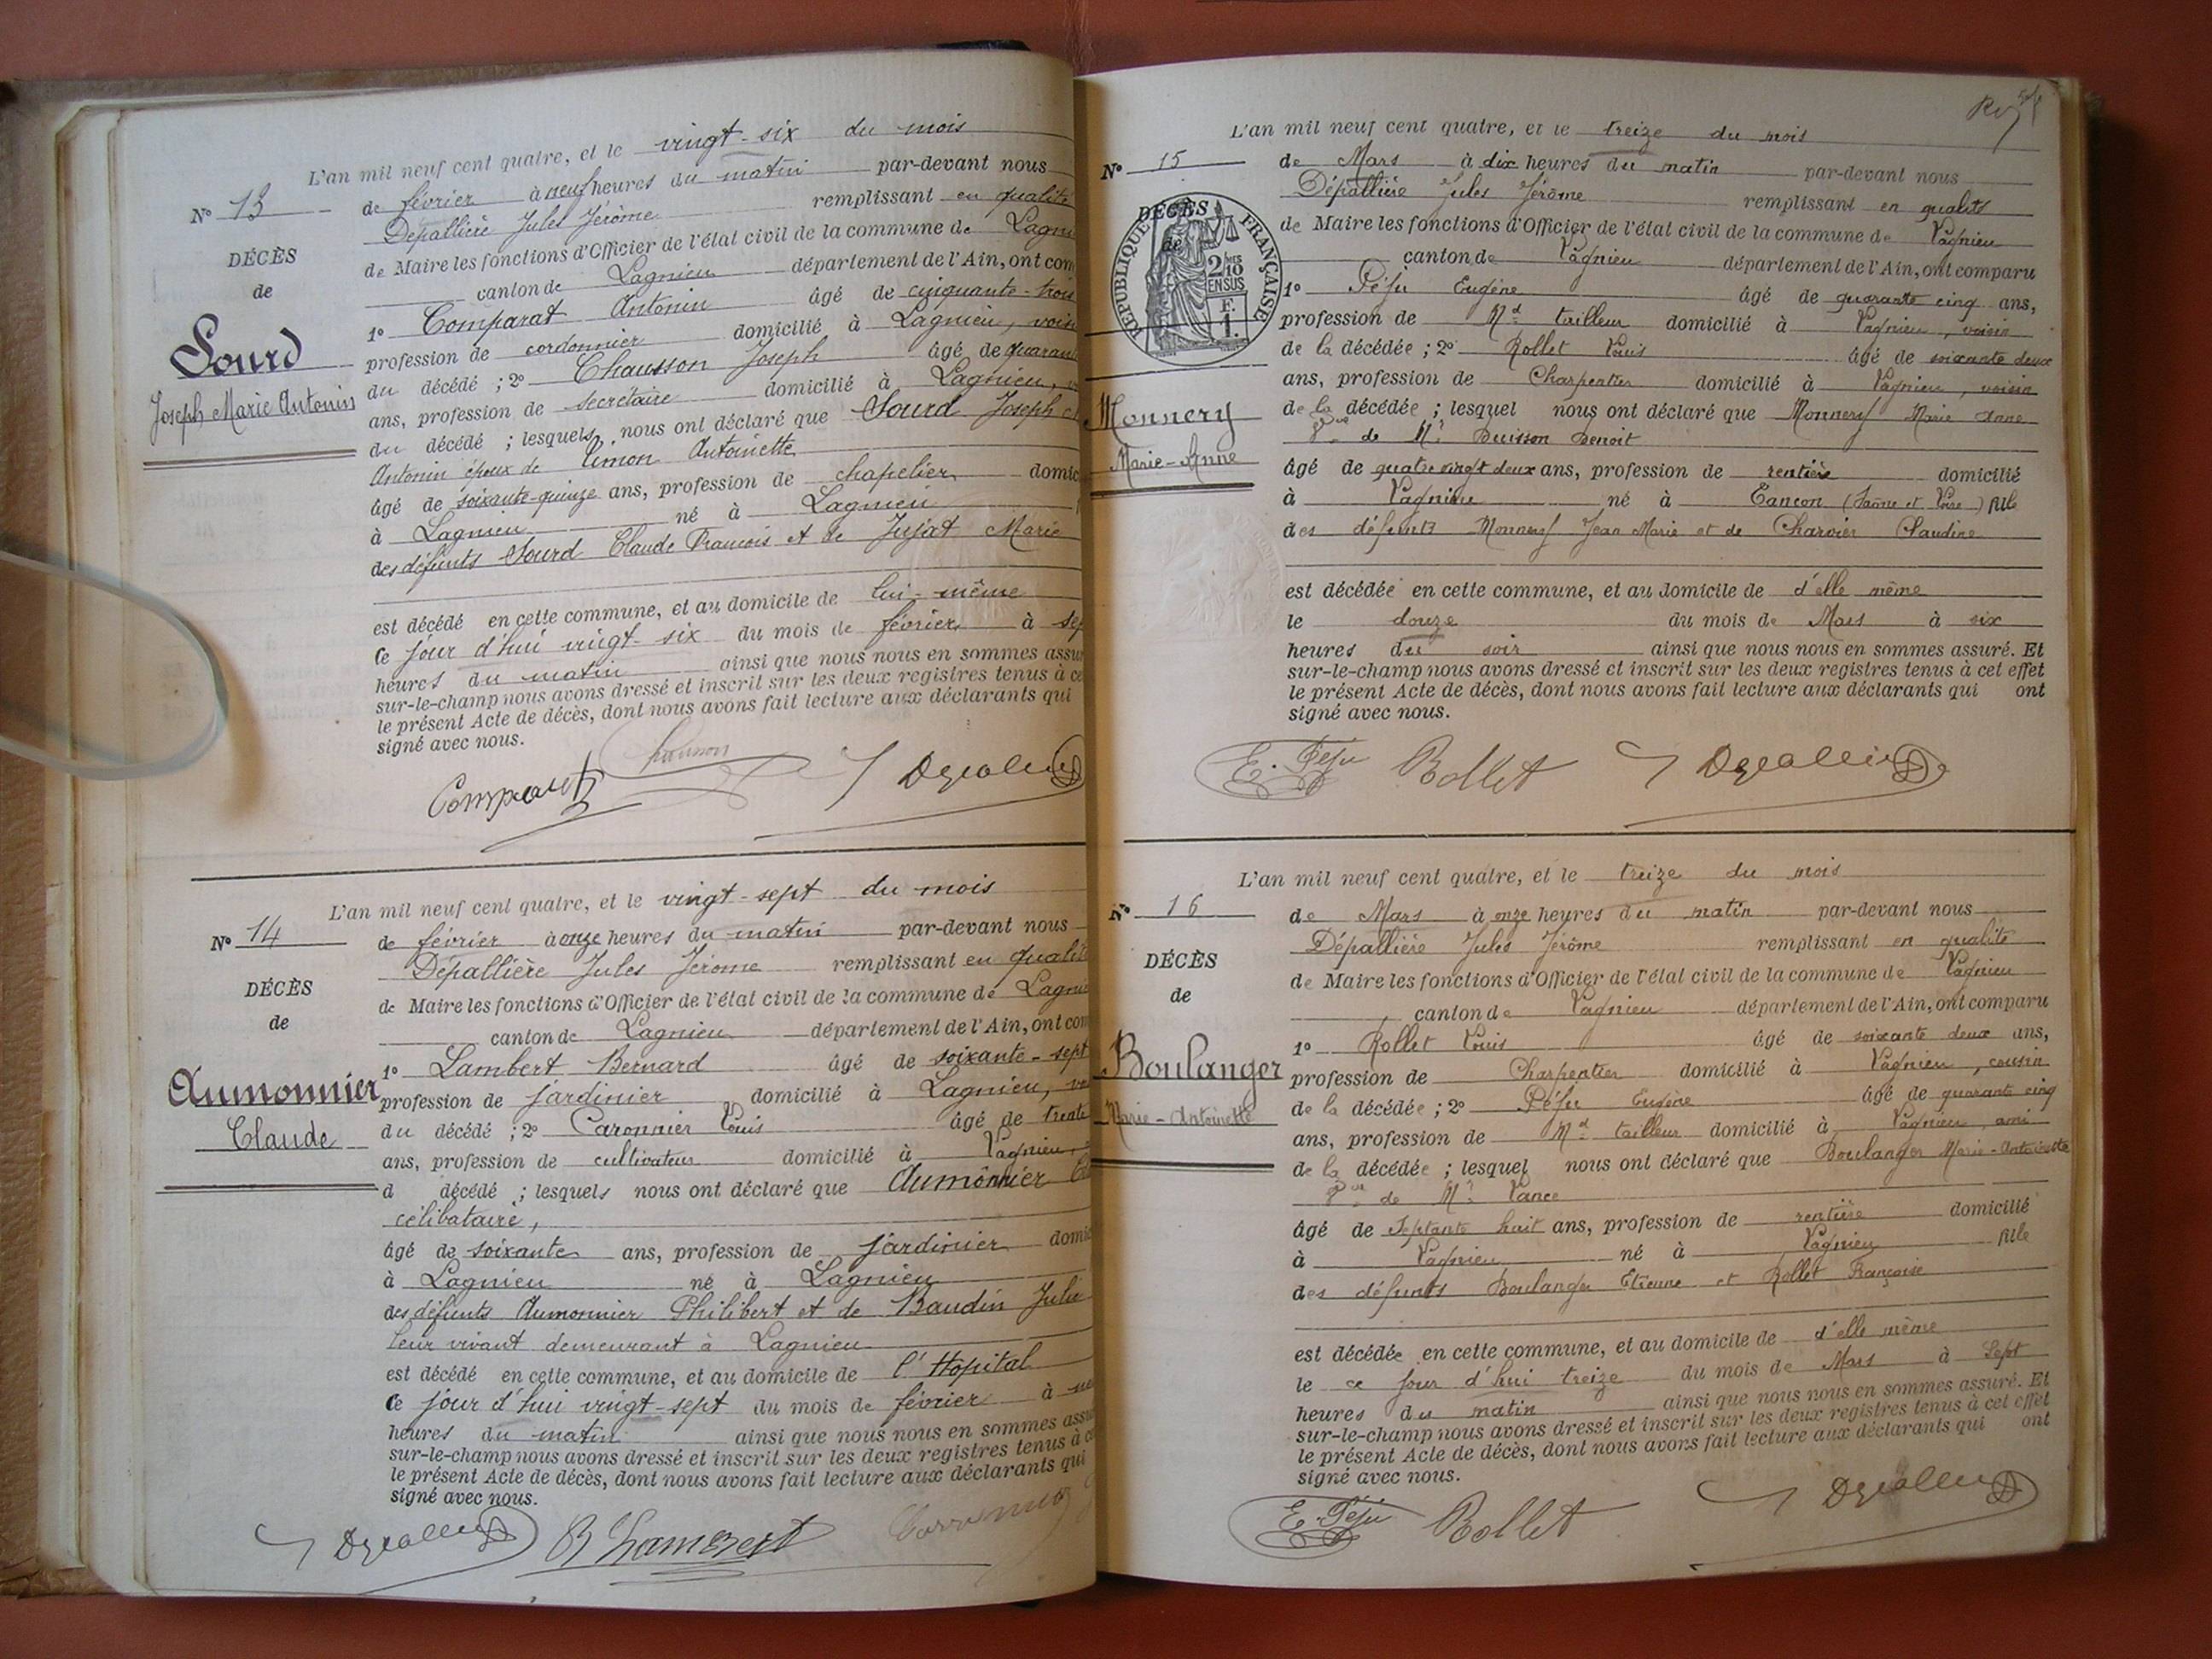 L'an mil neuf cent quatre, et le vingt-six du mois
N° 13
de février à neuf heures du matin par-devant nous
Dépallière Jules Jérôme remplissant en qualité
de Maire les fonctions d'Officier de l'état civil de la commune de Lagni
DÉCÈS
de
canton de Lagnieu département de l'Ain, ont com
1° Comparat Antonin âgé de cinquante-trois
Sourd
profession de cordonnier domicilié à Lagnieu, vois
du décédé ; 2° Chausson Joseph âgé de quarant
Joseph Marie Antonin
ans, profession de secrétaire domicilié à Lagnieu,
du décédé ; lesquels nous ont déclaré que Sourd Joseph
Antonin époux de Limon Antoinette
âgé de soixante-quinze ans, profession de chapelier domic
à Lagnieu né à Lagnieu
des défunts Sourd Claude François et de Jujat Marie
est décédé en cette commune, et au domicile de lui-même
Ce jour d'hui vingt-six du mois de février à sep
heures du matin ainsi que nous nous en sommes assu
sur-le-champ nous avons dressé et inscrit sur les deux registres tenus à ce
le présent Acte de décès, dont nous avons fait lecture aux déclarants qui
signé avec nous.
Comparat Chausson J Depallière
L'an mil neuf cent quatre, et le vingt-sept du mois
N° 14
de février à onze heures du matin par-devant nous
Dépallière Jules Jérome remplissant en qualité
DÉCÈS
de Maire les fonctions d'Officier de l'état civil de la commune de Lagnie
de
canton de Lagnieu département de l'Ain, ont com
1° Lambert Bernard âgé de soixante-sept
Aumonnier
profession de jardinier domicilié à Lagnieu,
Claude
du décédé ; 2° Caronnier Louis âgé de trente
ans, profession de cultivateur domicilié à Lagnieu,
d décédé ; lesquels nous ont déclaré que Aumônnier
célibataire,
âgé de soixante ans, profession de jardinier domic
à Lagnieu né à Lagnieu
des défunts Aumonnier Philibert et de Baudin Julie
leur vivant demeurant à Lagnieu
est décédé en cette commune, et au domicile de l'Hopital
Ce jour d'hui vingt-sept du mois de février à
heures du matin ainsi que nous nous en sommes assu
sur-le-champ nous avons dressé et inscrit sur les deux registres tenus à ce
le présent Acte de décès, dont nous avons fait lecture aux déclarants qui
signé avec nous.
J Depallière B Lambert Caronnier
L'an mil neuf cent quatre, et le treize du mois
N° 15
de Mars à dix heures du matin par-devant nous
Dépallière Jules Jérôme remplissant en qualité
DÉCÈS
de
RÉPUBLIQUE FRANÇAISE
2/10 EN SUS
F. 1.
de Maire les fonctions d'Officier de l'état civil de la commune de Lagnieu
canton de Lagnieu département de l'Ain, ont comparu
1° Péju Eugène âgé de quarante cinq ans,
profession de Md tailleur domicilié à Lagnieu, voisin
de la décédée ; 2° Rollet Louis âgé de soixante deux
ans, profession de Charpentier domicilié à Lagnieu, voisin
Monnery
de la décédée ; lesquel nous ont déclaré que Monnery Marie Anne
Marie-Anne
Vve de Mr Buisson Benoit
âgé de quatre vingt deux ans, profession de rentière domicilié
à Lagnieu né à Tancon (Saône et Loire) fille
des défunts Monnery Jean Marie et de Charvier Claudine
est décédée en cette commune, et au domicile de d'elle même
le douze du mois de Mars à six
heures du soir ainsi que nous nous en sommes assuré. Et
sur-le-champ nous avons dressé et inscrit sur les deux registres tenus à cet effet
le présent Acte de décès, dont nous avons fait lecture aux déclarants qui ont
signé avec nous.
E. Péju Rollet J Depallière
L'an mil neuf cent quatre, et le treize du mois
N° 16
de Mars à onze heures du matin par-devant nous
Dépallière Jules Jérôme remplissant en qualité
DÉCÈS
de Maire les fonctions d'Officier de l'état civil de la commune de Lagnieu
de
canton de Lagnieu département de l'Ain, ont comparu
1° Rollet Louis âgé de soixante deux ans,
Boulanger
profession de Charpentier domicilié à Lagnieu, cousin
Marie-Antoinette
de la décédée ; 2° Péju Eugène âgé de quarante cinq
ans, profession de Md tailleur domicilié à Lagnieu, ami
de la décédée ; lesquel nous ont déclaré que Boulanger Marie-Antoinette
Vve de Mr Lance
âgé de septante huit ans, profession de rentière domicilié
à Lagnieu né à Lagnieu fille
des défunts Boulanger Etienne et Rollet Françoise
est décédée en cette commune, et au domicile de d'elle même
le ce jour d'hui treize du mois de Mars à Sept
heures du matin ainsi que nous nous en sommes assuré. Et
sur-le-champ nous avons dressé et inscrit sur les deux registres tenus à cet effet
le présent Acte de décès, dont nous avons fait lecture aux déclarants qui ont
signé avec nous.
E. Péju Rollet J Depallière